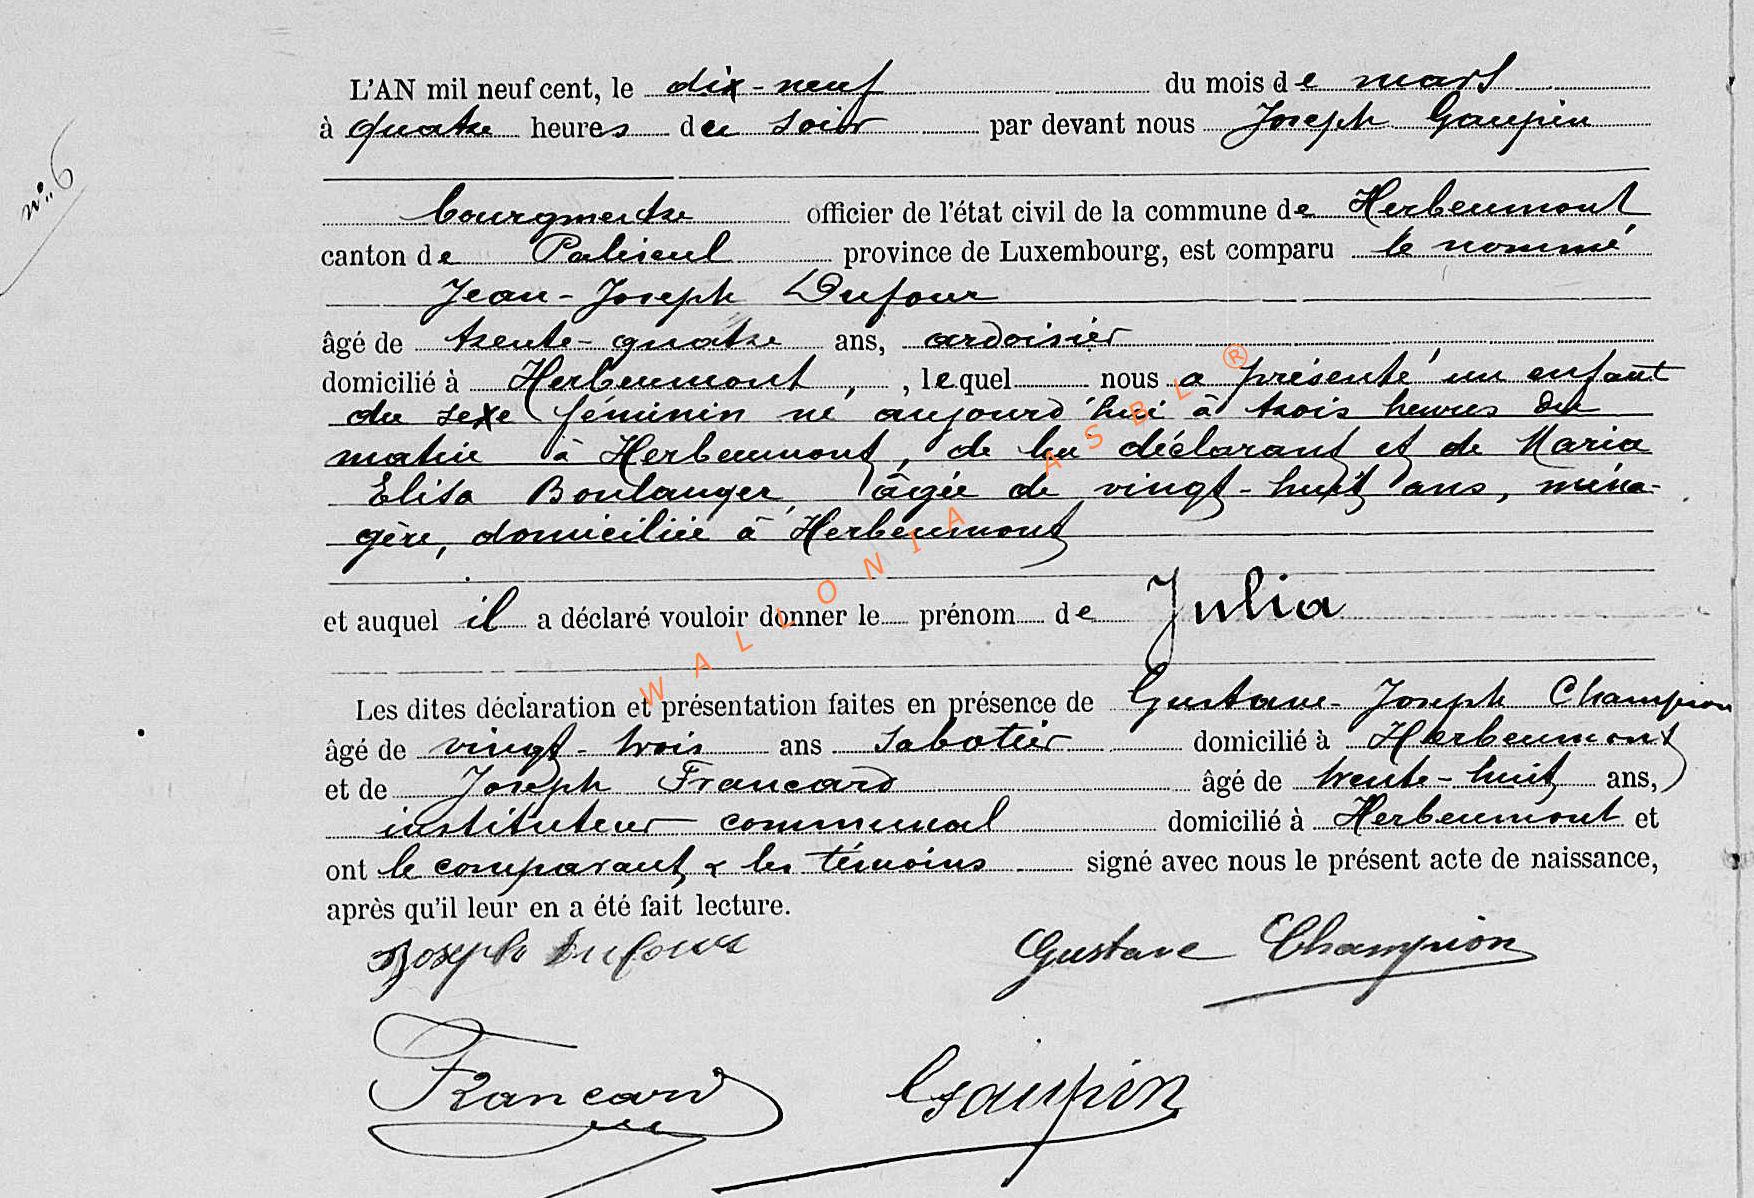 L'AN mil neuf cent, le dix-neuf du mois de mars
à quatre heures du soir par devant nous Joseph Gaupin
n°. 6
bourgmestre officier de l'état civil de la commune de Herbeumont
canton de Paliseul province de Luxembourg, est comparu le nommé
Jean-Joseph Dufour
âgé de trente-quatre ans, ardoisier
domicilié à Herbeumont, , lequel nous a présenté un enfant
du sexe féminin né aujourd'hui à trois heures du
matin à Herbeumont, de lui déclarant et de Maria
Elisa Boulanger, âgée de vingt-huit ans, ména-
gère, domiciliée à Herbeumont
et auquel il a déclaré vouloir donner le prénom de Julia
Les dites déclaration et présentation faites en présence de Gustave-Joseph Champion
âgé de vingt-trois ans sabotier domicilié à Herbeumont
et de Joseph Francard âgé de trente-huit ans,
instituteur communal domicilié à Herbeumont et
ont le comparant & les témoins signé avec nous le présent acte de naissance,
après qu'il leur en a été fait lecture.
Joseph Dufour Gustave Champion
Francard Gaupin
WALLONIA ASBL ®